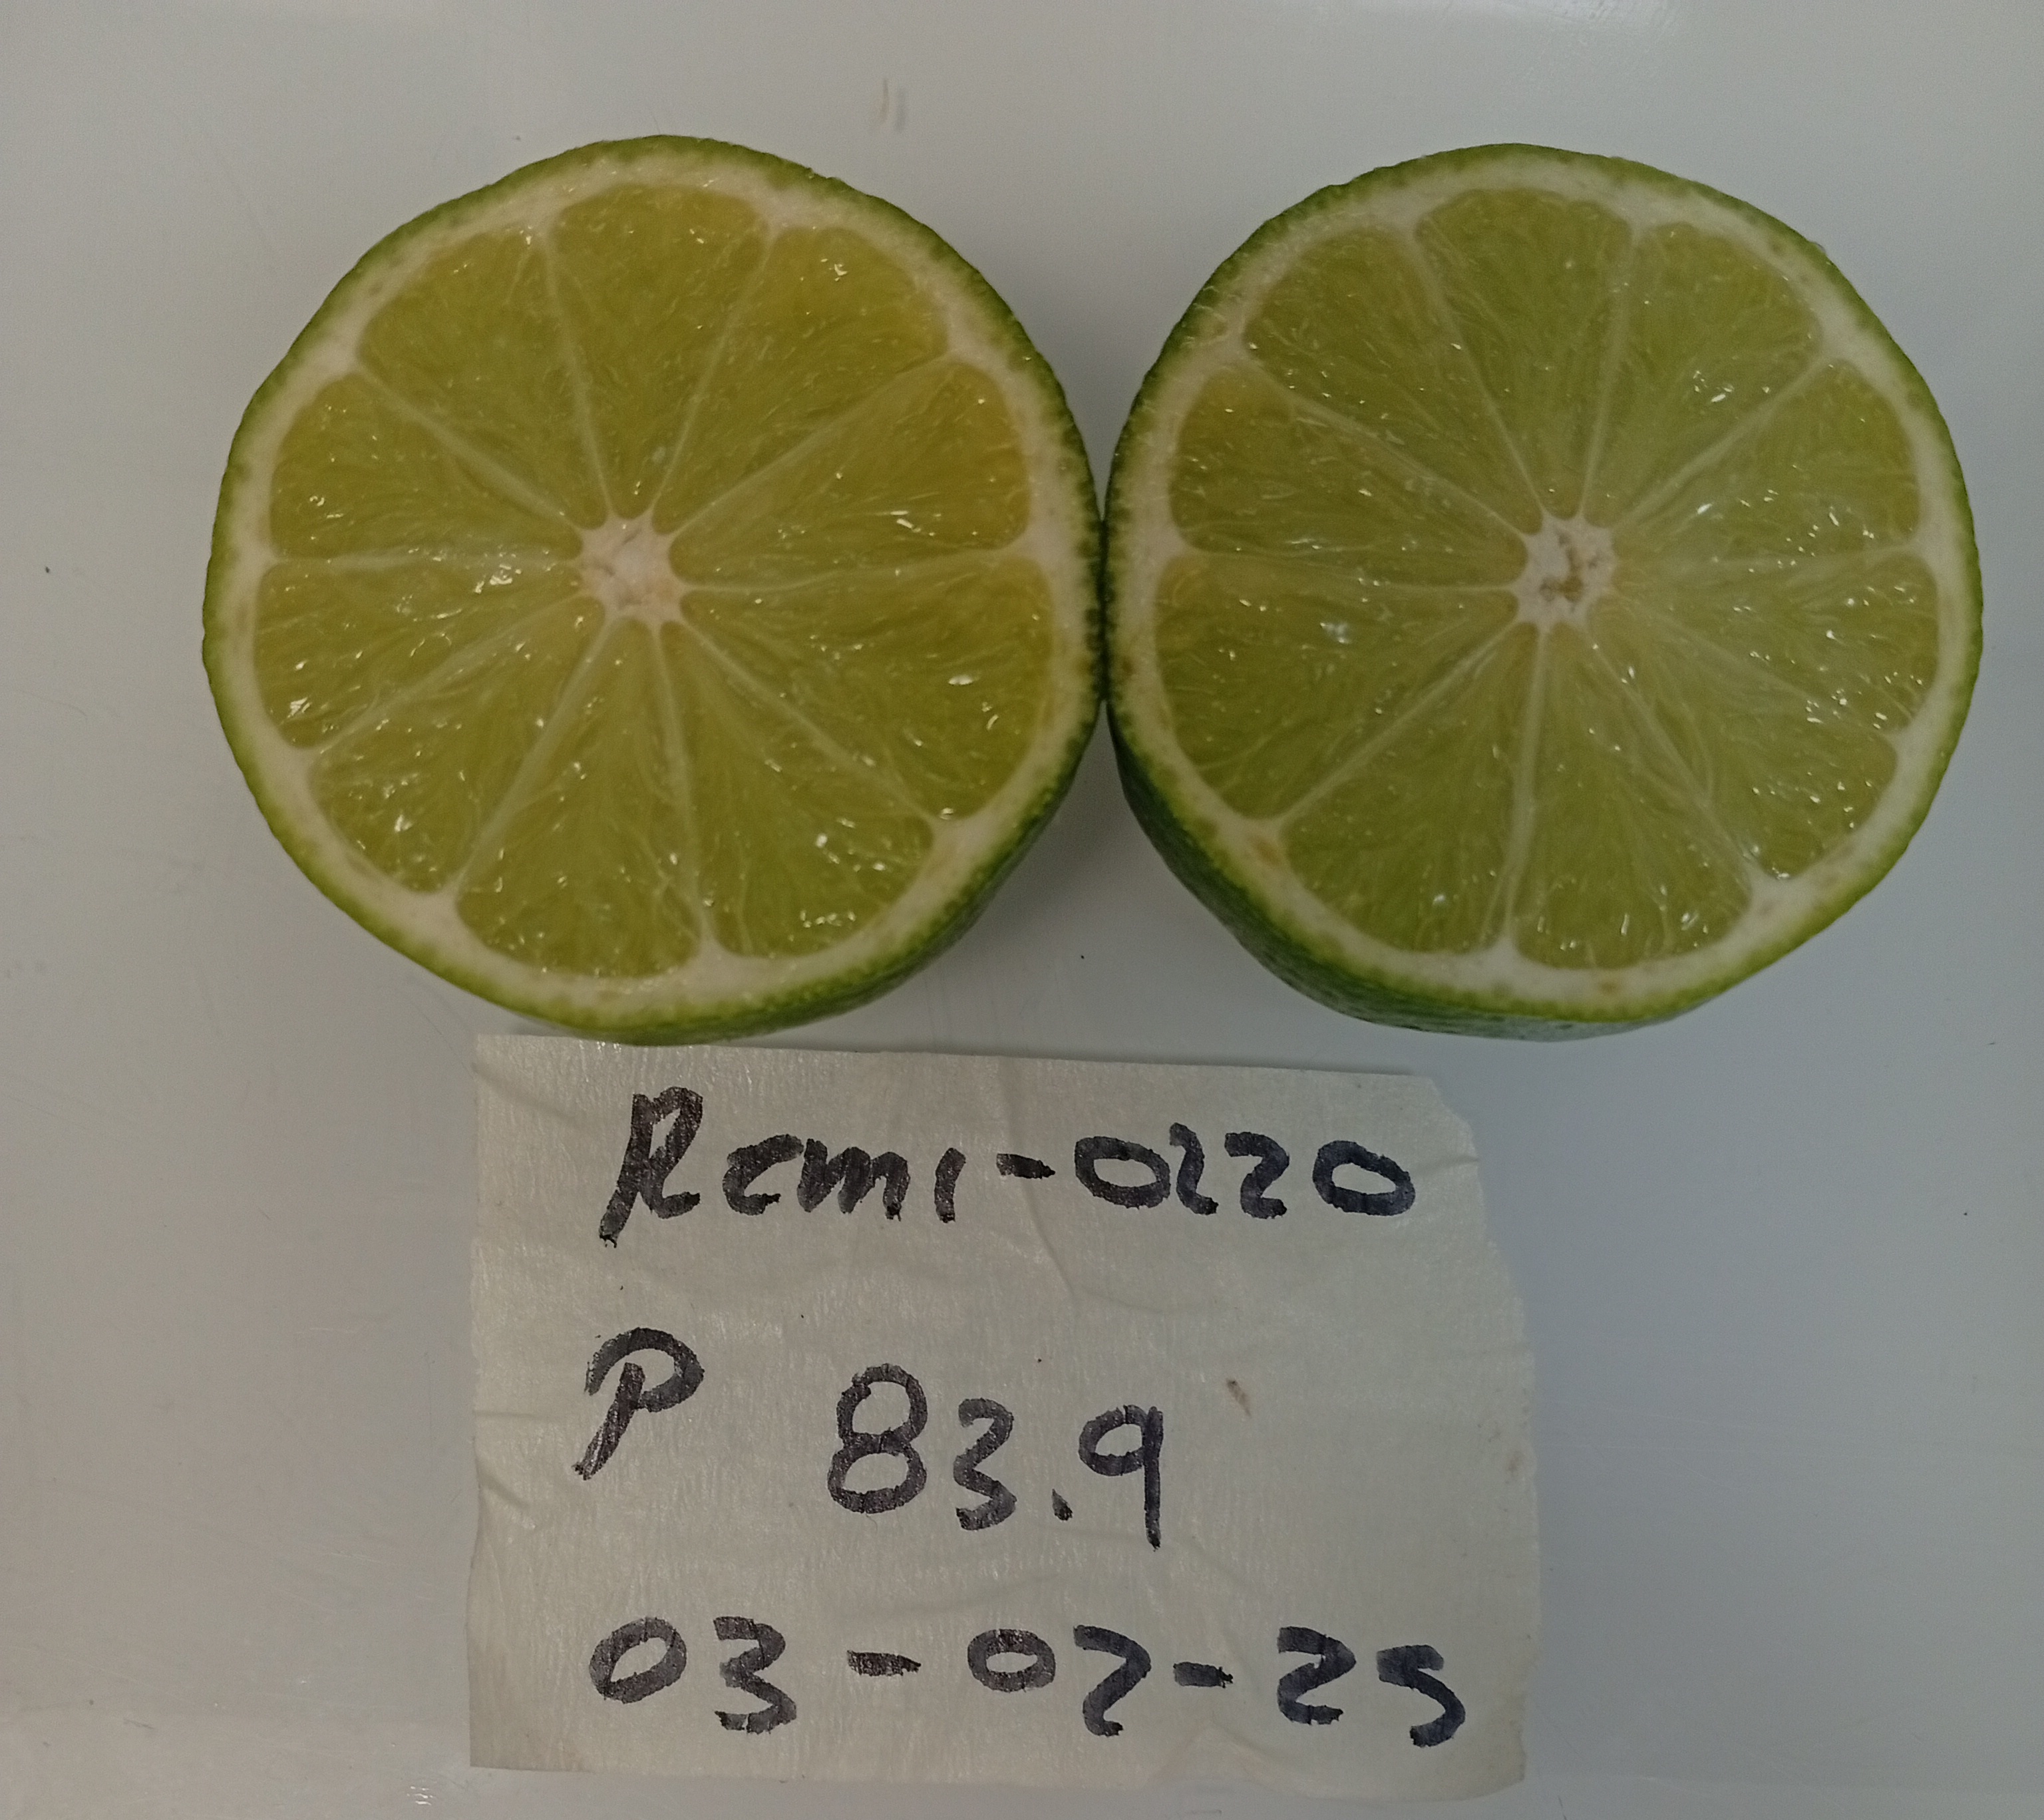 Remi-0220
P 83.9
03-02-25